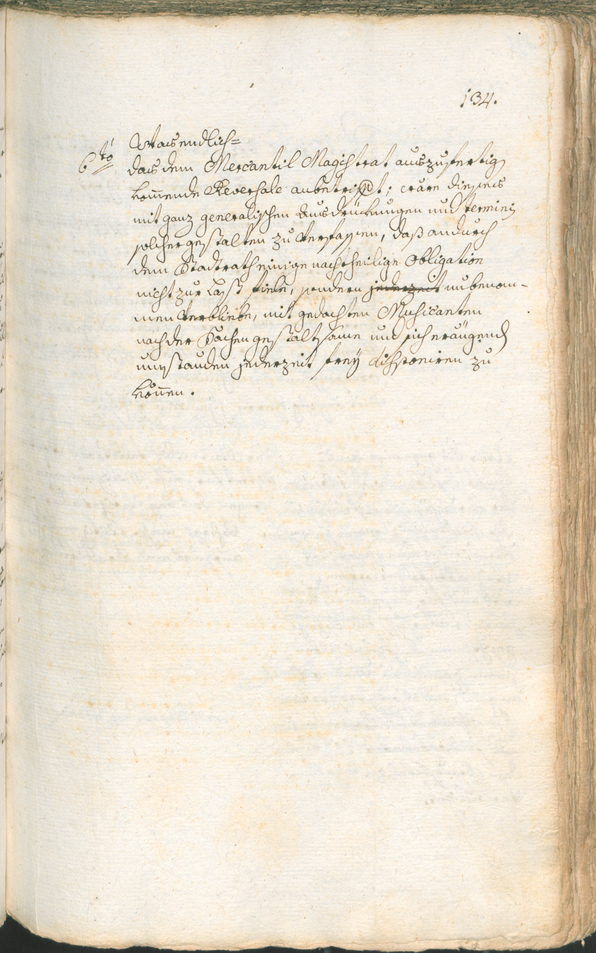 134.
Was endlich=
6to das dem Mercantil Magistrat auszufertig
komende Reversale anbetrift; wäre dieses
mit ganz generalischen Ausdruckungen und terminis
solchergestalten zu verfassen, daß andurch
dem Stadtrath einige nachtheilige Obligation
nicht zur Last fiele, sondern jederzeit unbenom-
men verbliebe, mit gedachten Musicanten
nach der Sachen gestaltsame und sich eräugend
umständen jederzeit frey disponiren zu
können.